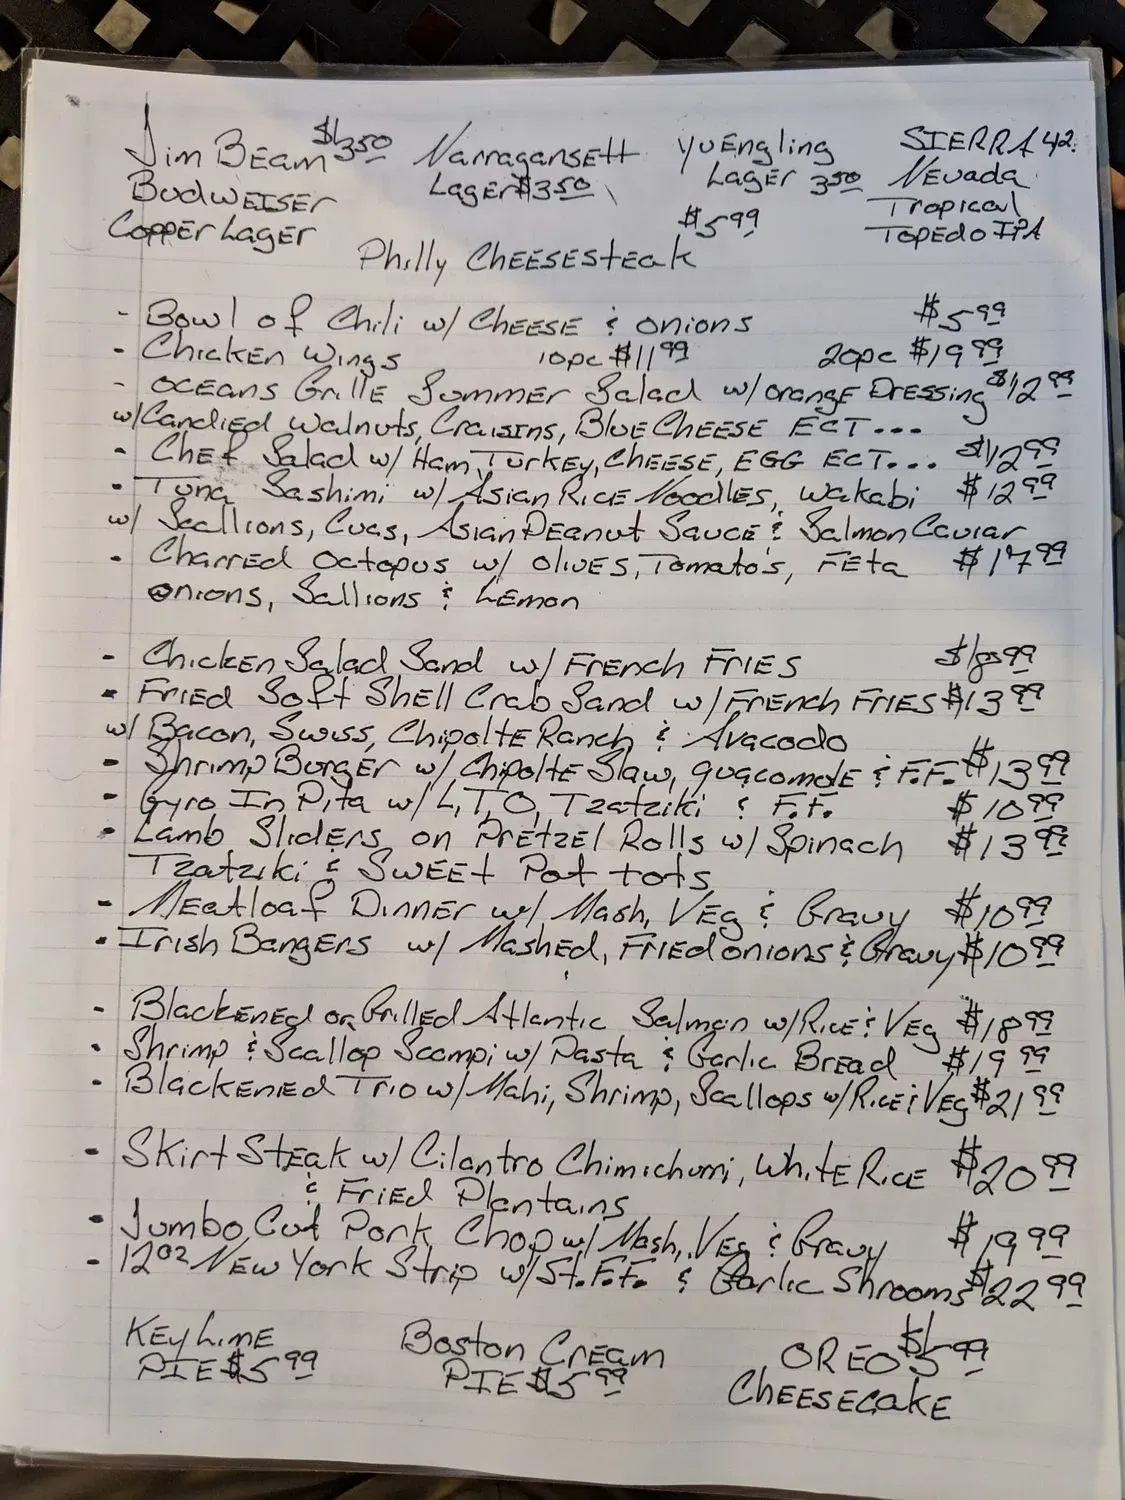 Jim Beam $3.50 Narragansett Yuengling SIERRA
Budweiser Lager $3.50 Lager 3.50 Nevada
Copper Lager $5.99 Tropical
Topedo IPA
Philly Cheesesteak
- Bowl of Chili w/ Cheese & Onions $5.99
- Chicken Wings 10pc $11.99 20pc $19.99
- Oceans Grille Summer Salad w/ orange Dressing $12.99
w/ Candied Walnuts, Craisins, Blue Cheese ECT...
- Chef Salad w/ Ham, Turkey, Cheese, EGG ECT... $12.99
- Tuna Sashimi w/ Asian Rice Noodles, Wakabi $12.99
w/ Scallions, Cucs, Asian Peanut Sauce & Salmon Caviar
- Charred Octopus w/ olives, Tomato's, Feta $17.99
onions, Sallions & Lemon
- Chicken Salad Sand w/ French Fries
- Fried Soft Shell Crab Sand w/ French Fries $13.99
w/ Bacon, Swiss, Chipolte Ranch & Avacodo
- Shrimp Burger w/ Chipolte Slaw, guacomole & F.F. $13.99
- Gyro In Pita w/ L,T,O, Tzatziki & F.F. $10.99
- Lamb Sliders on Pretzel Rolls w/ Spinach $13.99
Tzatziki & Sweet Pot tots
- Meatloaf Dinner w/ Mash, Veg & Gravy $10.99
- Irish Bangers w/ Mashed, Fried onions & Gravy $10.99
- Blackened or Grilled Atlantic Salmon w/ Rice & Veg $18.99
- Shrimp & Scallop Scampi w/ Pasta & Garlic Bread $19.99
- Blackened Trio w/ Mahi, Shrimp, Scallops w/ Rice & Veg $21.99
- Skirt Steak w/ Cilantro Chimichurri, White Rice $20.99
& Fried Plantains
- Jumbo Cut Pork Chop w/ Mash, Veg & Gravy $19.99
- 12oz New York Strip w/ St. F.F. & Garlic Shrooms $22.99
Key Lime Boston Cream OREO $5.99
PIE $5.99 PIE $5.99 Cheesecake